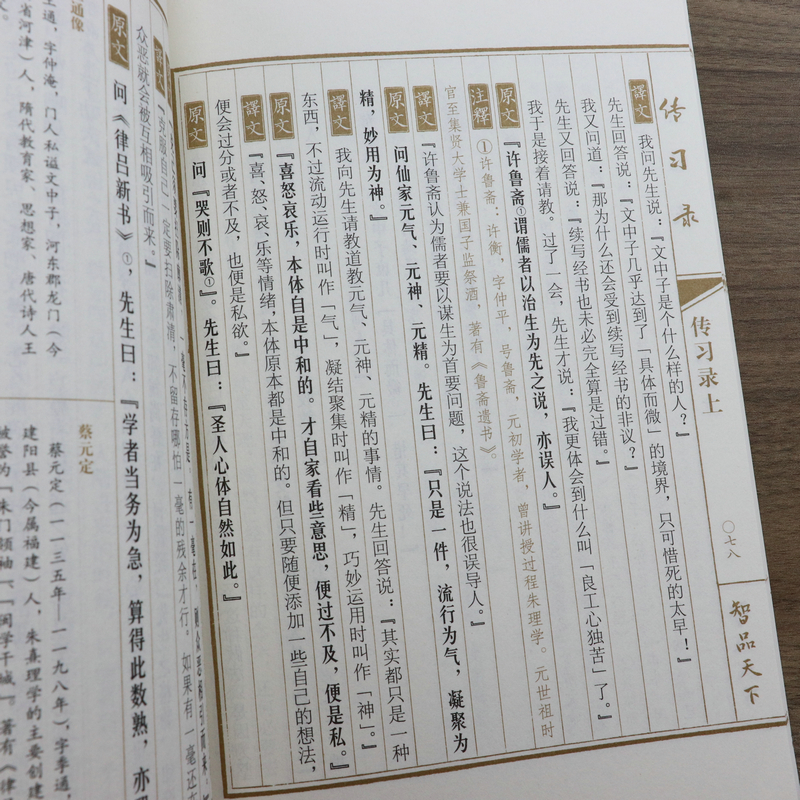 传习录
传习录上
〇七八
智品天下
譯文 我问先生说：『文中子是个什么样的人？』
先生回答说：『文中子几乎达到了「具体而微」的境界，只可惜死的太早！』
我又问道：『那为什么还会受到续写经书的非议？』
先生又回答说：『续写经书也未必完全算是过错。』
我于是接着请教。过了一会，先生才说：『我更体会到什么叫「良工心独苦」了。』
原文 『许鲁斋①谓儒者以治生为先之说，亦误人。』
注釋 ①许鲁斋：许衡，字仲平，号鲁斋，元初学者，曾讲授过程朱理学。元世祖时
官至集贤大学士兼国子监祭酒，著有《鲁斋遗书》。
譯文 『许鲁斋认为儒者要以谋生为首要问题，这个说法也很误导人。』
原文 问仙家元气、元神、元精。先生曰：『只是一件，流行为气，凝聚为
精，妙用为神。』
譯文 我向先生请教道教元气、元神、元精的事情。先生回答说：『其实都只是一种
东西，不过流动运行时叫作「气」，凝结聚集时叫作「精」，巧妙运用时叫作「神」。』
原文 『喜怒哀乐，本体自是中和的。才自家看些意思，便过不及，便是私。』
譯文 『喜、怒、哀、乐等情绪，本体原本都是中和的。但只要随便添加一些自己的想法，
便会过分或者不及，也便是私欲。』
原文 问『哭则不歌①』。先生曰：『圣人心体自然如此。』
譯文 『克服自己一定要扫除肃清，不留存哪怕一毫的残余才行。如果有一毫还
众恶就会被互相吸引而来。』
原文 问《律吕新书》①，先生曰：『学者当务为急，算得此数熟，亦
通像
王通，字仲淹，门人私谥文中子，河东郡龙门（今
省河津）人，隋代教育家、思想家、唐代诗人王
蔡元定
蔡元定（一一三五年—一一九八年），字季通，
建阳县（今属福建）人，朱熹理学的主要创建
被誉为「朱门领袖」、「闽学干城」。著有《律